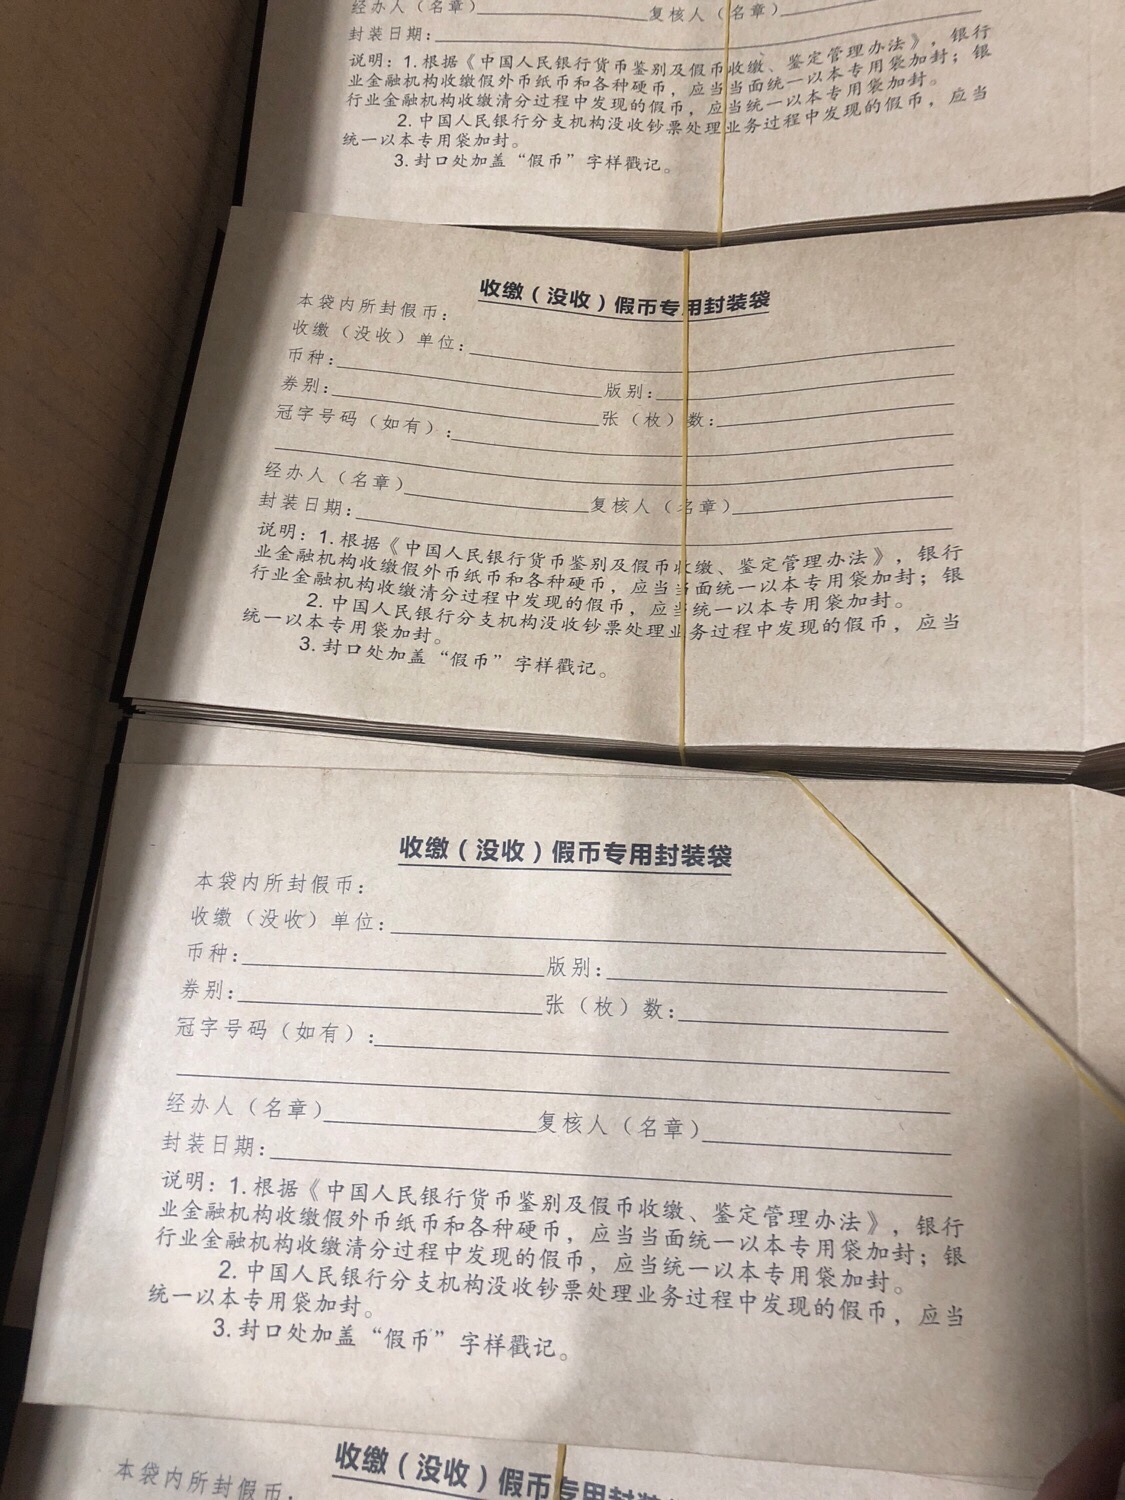 经办人（名章）复核人（名章）
封装日期：
说明：1.根据《中国人民银行货币鉴别及假币收缴、鉴定管理办法》，银行
业金融机构收缴假外币纸币和各种硬币，应当当面统一以本专用袋加封；银
行业金融机构收缴清分过程中发现的假币，应当统一以本专用袋加封。
2.中国人民银行分支机构没收钞票处理业务过程中发现的假币，应当
统一以本专用袋加封。
3.封口处加盖“假币”字样戳记。
收缴（没收）假币专用封装袋
本袋内所封假币：
收缴（没收）单位：
币种：版别：
券别：张（枚）数：
冠字号码（如有）：
经办人（名章）复核人（名章）
封装日期：
说明：1.根据《中国人民银行货币鉴别及假币收缴、鉴定管理办法》，银行
业金融机构收缴假外币纸币和各种硬币，应当当面统一以本专用袋加封；银
行业金融机构收缴清分过程中发现的假币，应当统一以本专用袋加封。
2.中国人民银行分支机构没收钞票处理业务过程中发现的假币，应当
统一以本专用袋加封。
3.封口处加盖“假币”字样戳记。
收缴（没收）假币专用封装袋
本袋内所封假币：
收缴（没收）单位：
币种：版别：
券别：张（枚）数：
冠字号码（如有）：
经办人（名章）复核人（名章）
封装日期：
说明：1.根据《中国人民银行货币鉴别及假币收缴、鉴定管理办法》，银行
业金融机构收缴假外币纸币和各种硬币，应当当面统一以本专用袋加封；银
行业金融机构收缴清分过程中发现的假币，应当统一以本专用袋加封。
2.中国人民银行分支机构没收钞票处理业务过程中发现的假币，应当
统一以本专用袋加封。
3.封口处加盖“假币”字样戳记。
收缴（没收）假币专用封装
本袋内所封假币：